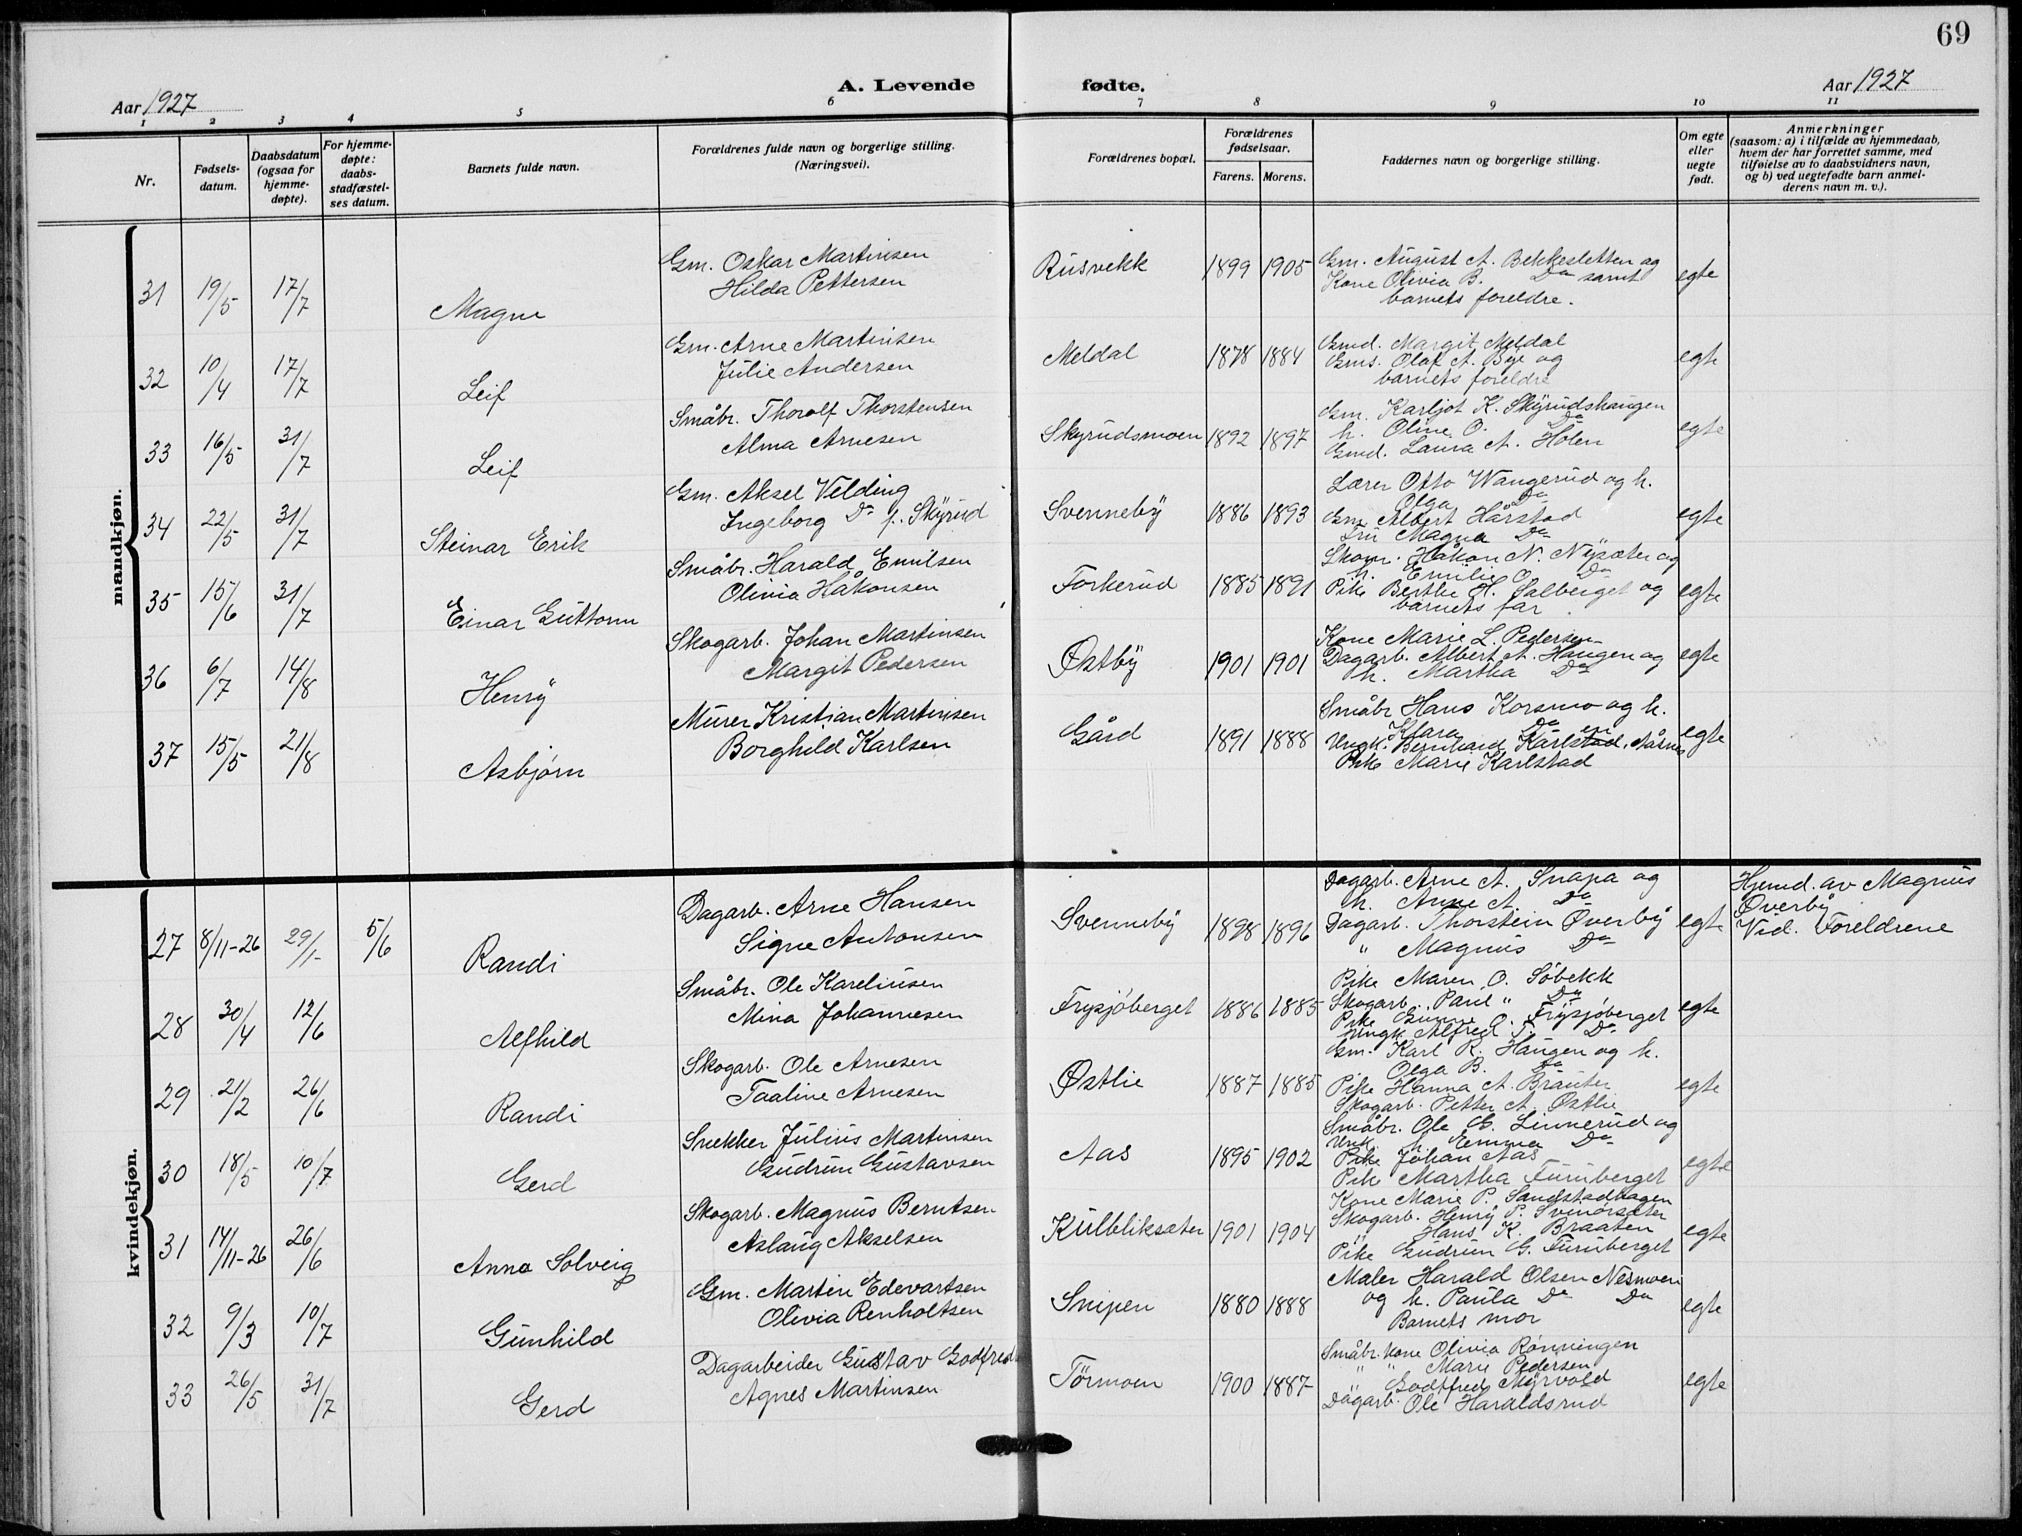 69
A. Levende fødte.
Aar 1927
Aar 1927
1 2 3 4 5 6 7 8 9 10 11
Nr.
Fødsels-
datum.
Daabsdatum
(ogsaa for
hjemme-
døpte).
For hjemme-
døpte:
daabs-
stadfæstel-
ses datum.
Barnets fulde navn.
Forældrenes fulde navn og borgerlige stilling.
(Næringsvei).
Forældrenes bopæl.
Forældrenes
fødselsaar.
Farens. Morens.
Faddernes navn og borgerlige stilling.
Om egte
eller
uegte
født.
Anmerkninger
(saasom: a) i tilfælde av hjemmedaab,
hvem der har forrettet samme, med
tilføielse av to daabsvidners navn,
og b) ved uegtefødte barn anmel-
derens navn m. v.).
mandkjøn.
31 19/5 17/7 Magne
Gm. Oskar Martinsen
Hilda Pettersen
Rusvekk 1899 1905
Gm. August A. Bekkesletten og
Kone Olivia B. Do samt
barnets foreldre.
egte
32 10/4 17/7 Leif
Gm. Arne Martinsen
Julie Andersen
Meldal 1878 1884
Gmd. Margit Meldal
Gms. Olaf A. Bye og
barnets foreldre
egte
33 16/5 31/7 Leif
Småbr. Thorolf Thorstensen
Alma Arnesen
Skyrudsmoen 1892 1897
Gm. Karljot K. Skyrudshaugen
h. Oline O. Do
Gmd. Laura A. Holen
egte
34 22/5 31/7 Steinar Erik
Gm. Aksel Velding
Ingeborg Do f. Skyrud
Svenneby 1886 1893
Lærer Otto Wangerud og h.
Olga Do
Gm. Albert Hårstad
Fru Magna Do
egte
35 15/6 31/7 Einar Guttorm
Småbr. Harald Emilsen
Olivia Håkonsen
Forkerud 1885 1891
Skom. Håkon N. Nysæter og
h. Emilie O. Do
Pike Berthe H. Salberget og
barnets far
egte
36 6/7 14/8 Henry
Skogarb. Johan Martinsen
Margit Pedersen
Østby 1901 1901
Kone Marie L. Pedersen
Dagarb. Albert A. Haugen og
h. Martha Do
egte
37 15/5 21/8 Asbjørn
Murer Kristian Martinsen
Borghild Karlsen
Gård 1891 1888
Småbr. Hans Korsmo og h.
Klara Do
Ungk. Bernhard Karlsen, Åsnes
Pike Marie Karlstad
egte
kvindekjøn.
27 8/11-26 29/1- 5/6 Randi
Dagarb. Arne Hansen
Signe Antonsen
Svenneby 1898 1896
Dagarb. Arne A. Snapa og
h. Anne A. Do
Dagarb. Thorstein Øverby
" Magnus Do
egte
Hjemd. av Magnus
Øverby
Vid. Foreldrene
28 30/4 12/6 Alfhild
Småbr. Ole Kareliusen
Mina Johannesen
Frysjøberget 1886 1885
Pike Maren O. Søbekk
Skogarb. Paul " Do
Pike Gunne O. Frysjøberget
Ungk. Alfred T. Do
egte
29 21/2 26/6 Randi
Skogarb. Ole Arnesen
Taaline Arnesen
Østlie 1887 1885
Gm. Karl R. Haugen og h.
Olga B. Do
Pike Hanna A. Bråuter
Skogarb. Petter A. Østlie
egte
30 18/5 10/7 Gerd
Snekker Julius Martinsen
Gudrun Gustavsen
Aas 1895 1902
Småbr. Ole G. Linnerud og
h. Emma Do
Unk. Johan Aas
Pike Martha Furuberget
egte
31 14/11-26 26/6 Anna Solveig
Skogarb. Magnus Berntsen
Aslaug Akselsen
Kulbliksæter 1901 1904
Kone Marie P. Sandstadhagen
Skogarb. Henry P. Svinorsæter
" Hans K. Braaten
Pike Gudrun G. Furuberget
egte
32 9/3 10/7 Gunhild
Gm. Martin Edevartsen
Olivia Renholtsen
Snipen 1880 1888
Maler Harald Olsen Nesmoen
og h. Paula Do Do
Barnets mor
egte
33 26/5 31/7 Gerd
Dagarbeider Gustav Godfred
Agnes Martinsen
Tørmoen 1900 1887
Småbr. kone Olivia Rønningen
" " Marie Pedersen
" Godtfred Myrvold
Dagarb. Ole Haraldsrud
egte